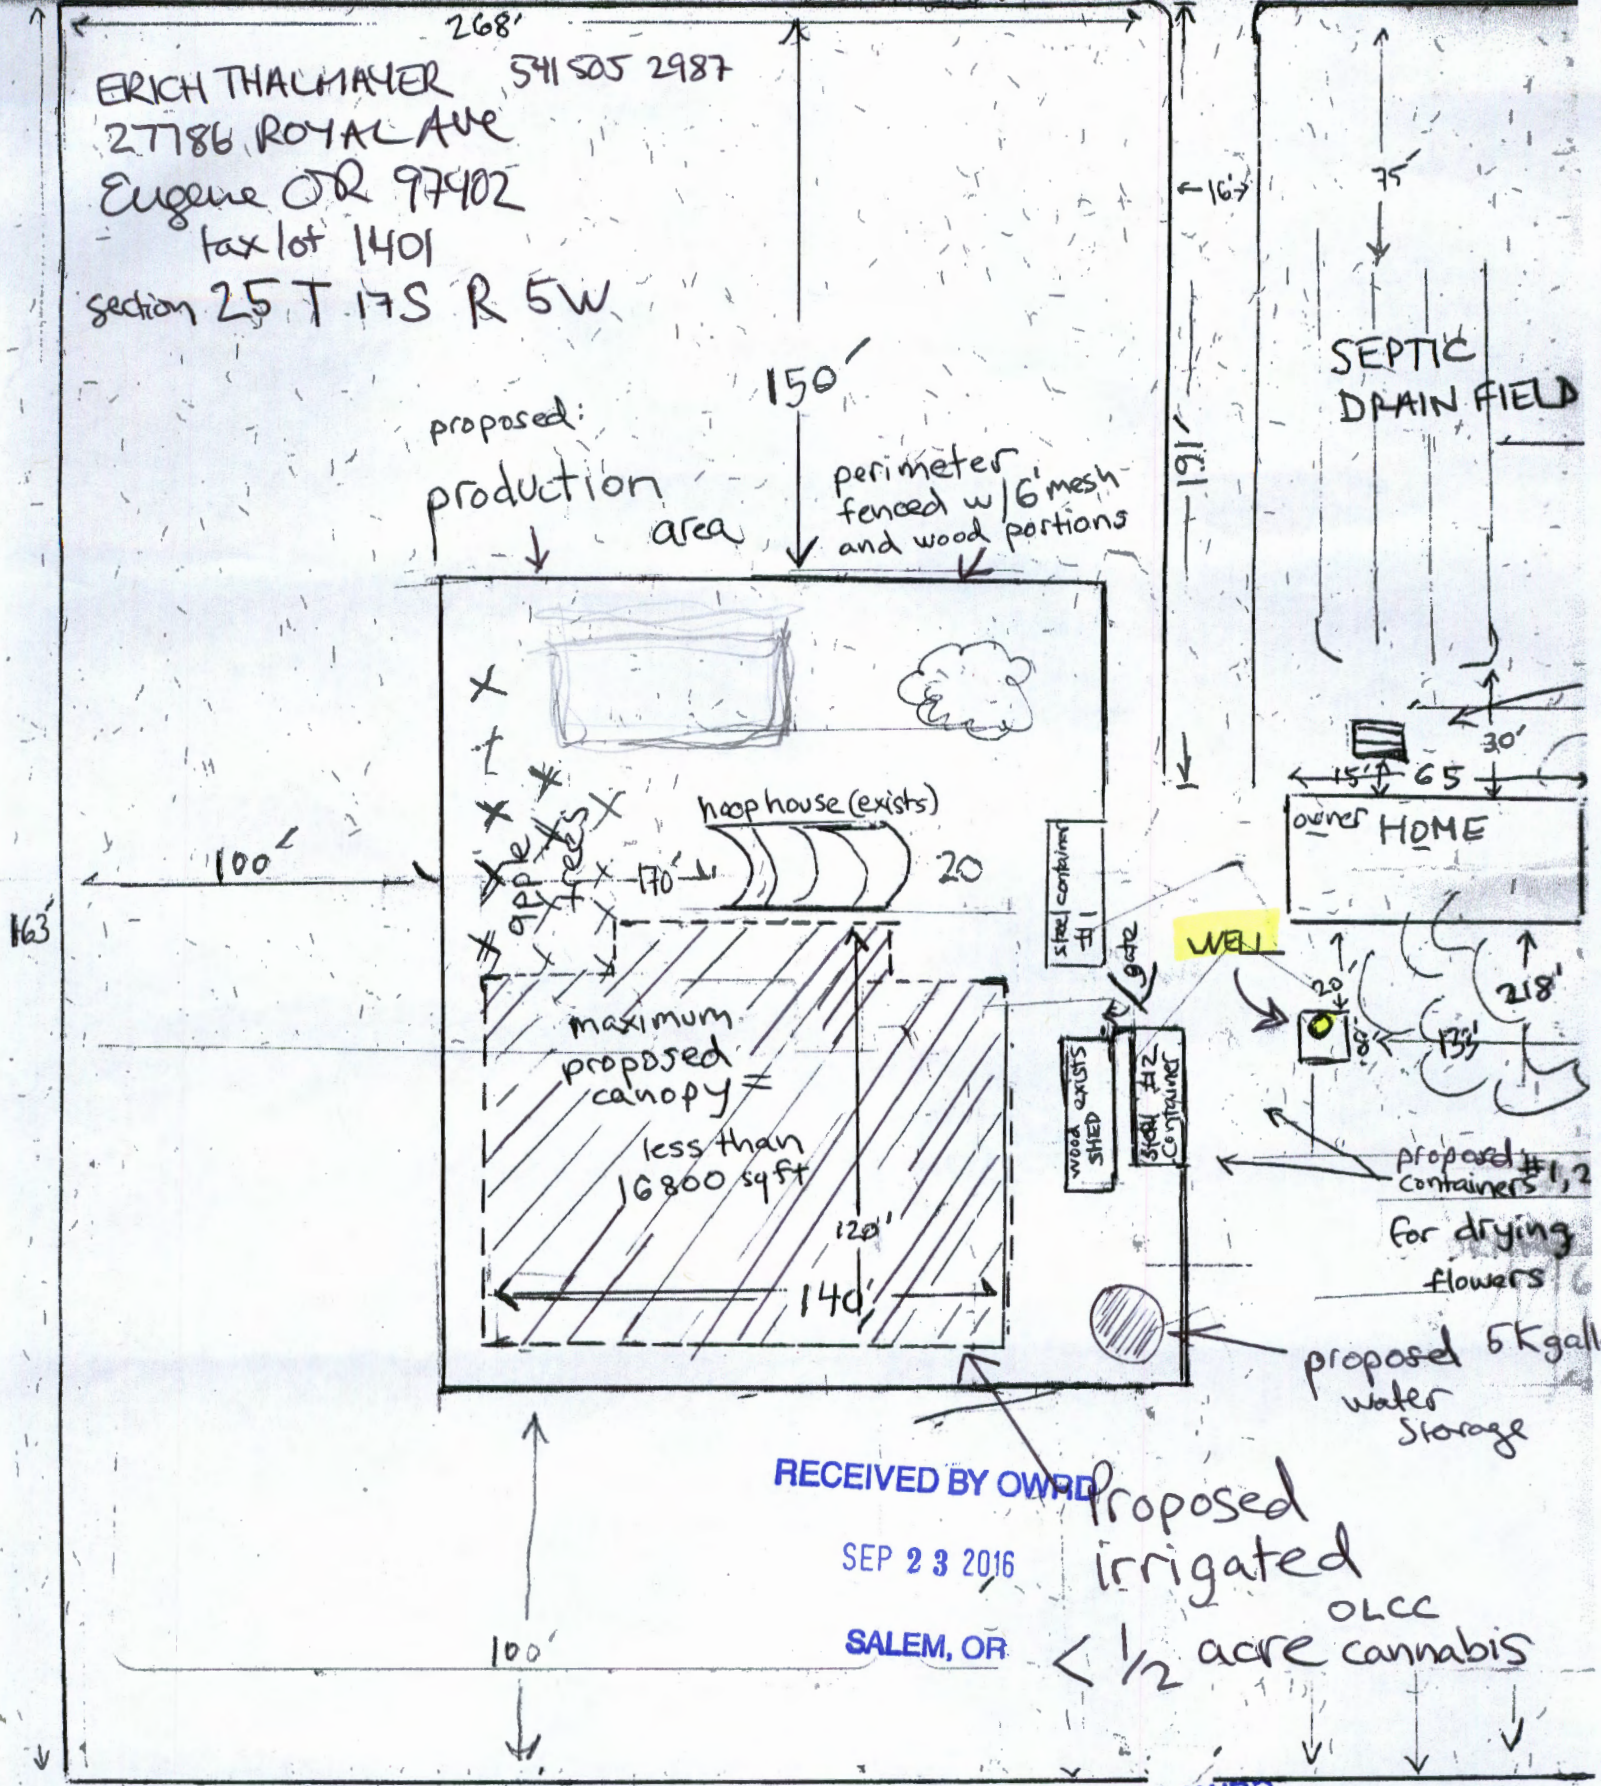 268'
ERICH THALMAYER 541 505 2987
27786 ROYAL AVE
Eugene OR 97402
tax lot 1401
section 25 T 17S R 5W
16'
75'
191'
150'
SEPTIC
DRAIN FIELD
proposed:
production
area
perimeter
fenced w/ 6' mesh
and wood portions
30'
15'
65
owner HOME
hoop house (exists)
apple
trees
100'
170'
20
163'
steel container
#1
gate
WELL
20'
218'
133'
maximum
proposed
canopy =
less than
16800 sq ft
120'
140'
wood exists
SHED
steel #2
container
proposd
containers #1, 2
for drying
flowers
proposed 5K gall
water
storage
RECEIVED BY OWRD
SEP 23 2016
SALEM, OR
Proposed
irrigated
OLCC
< 1/2 acre cannabis
100'